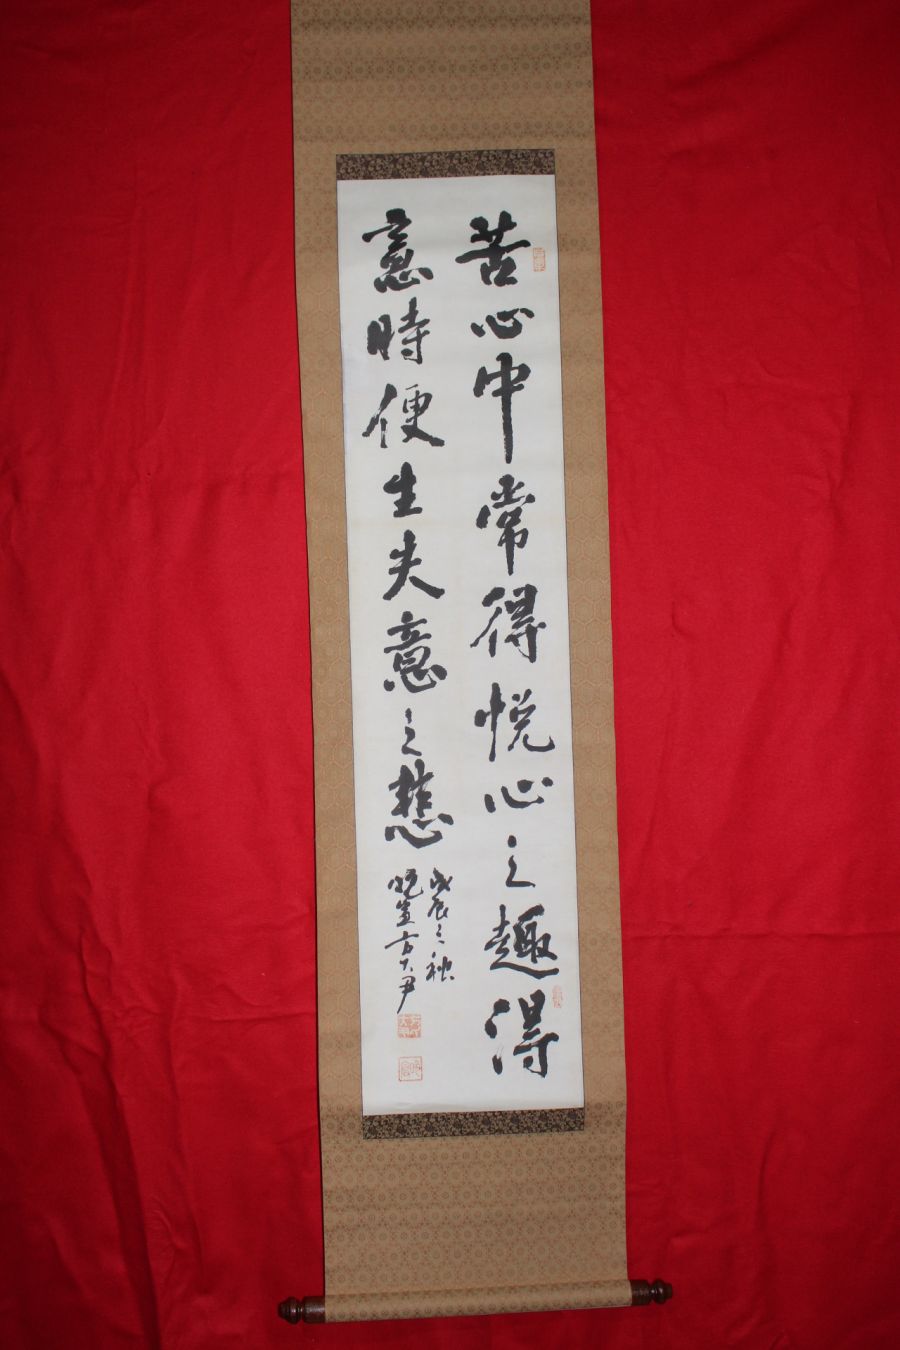 苦心中常得悅心之趣得
意時便生失意之悲
戊辰之秋
方大尹